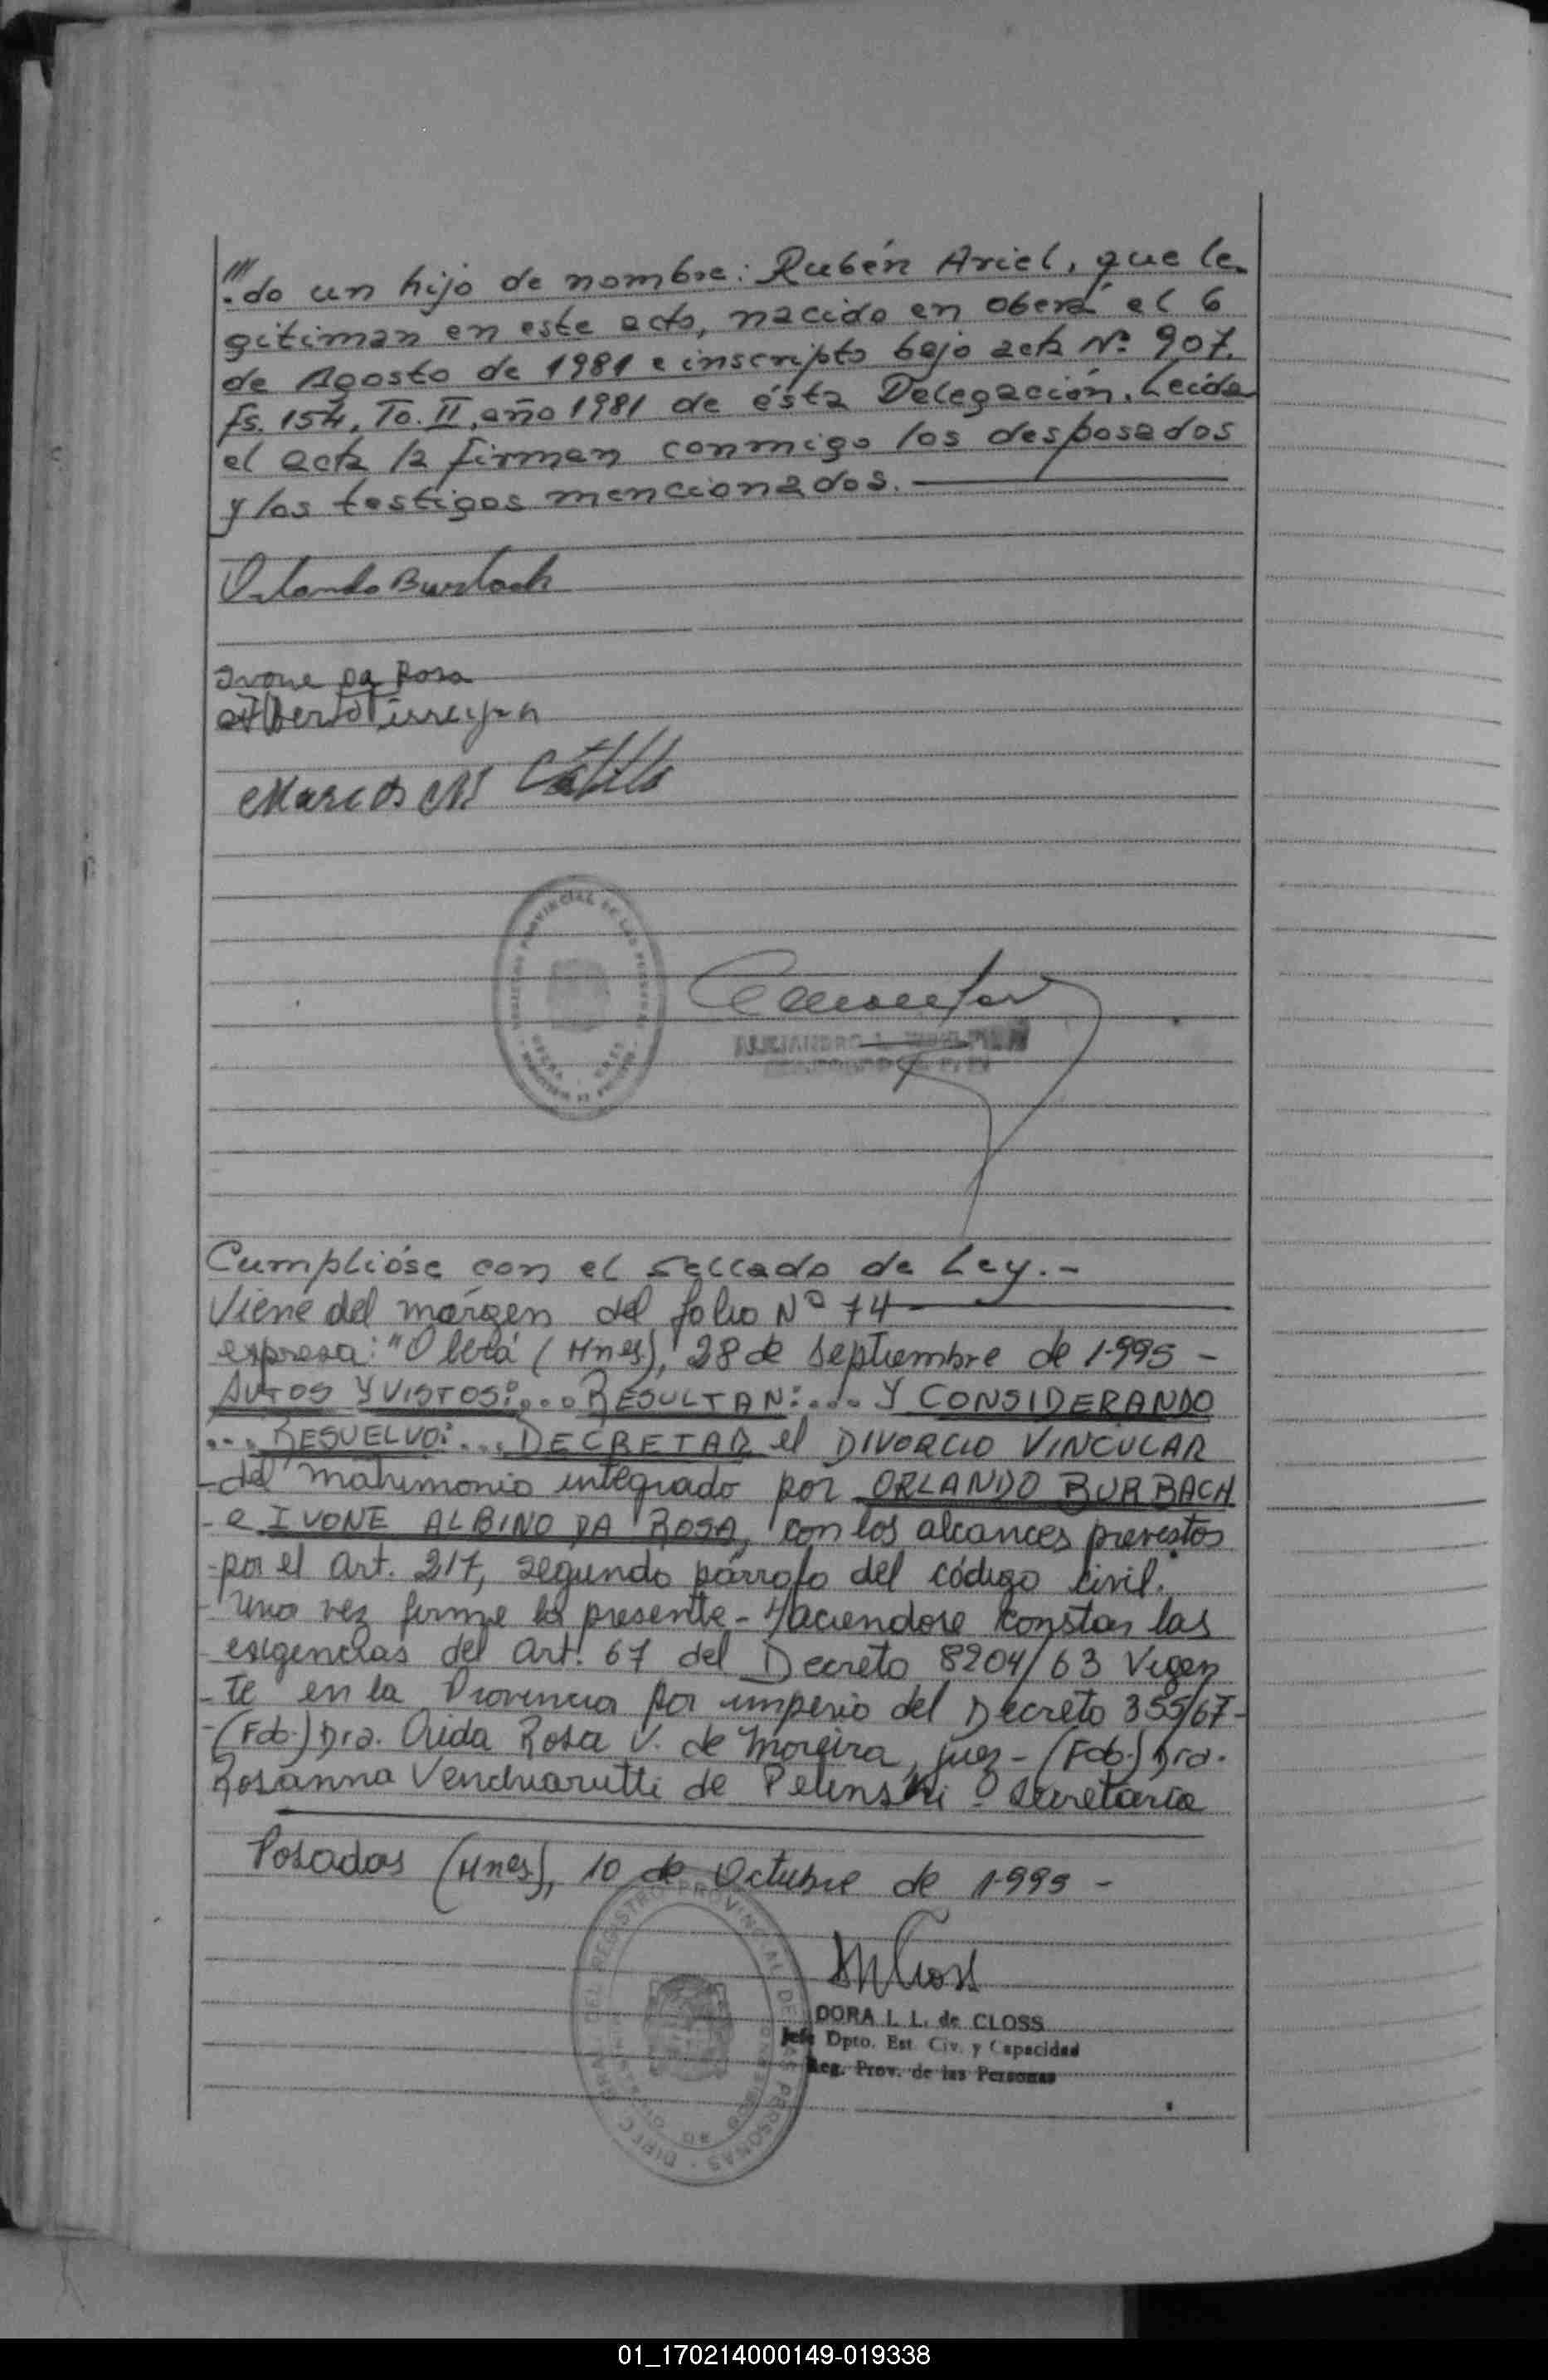 "/.do un hijo de nombre: Rubén Ariel, que le-
gitiman en este acto, nacido en oberá el 6
de Agosto de 1981 e inscripto bajo acta Nº 907,
fs. 154, To. II, año 1981 de ésta Delegación. Leida
el acta la firman conmigo los desposados
y los testigos mencionados.
Orlando Burbach
Ivone da Rosa
Alberto
Marcos
Cumplióse con el sellado de Ley.-
Viene del márgen del folio Nº 74-
expresa: "Oberá (Mnes), 28 de Septiembre de 1.995 -
AUTOS Y VISTOS:... RESULTAN:.... Y CONSIDERANDO
... RESUELVO:... DECRETAR el DIVORCIO VINCULAR
-del matrimonio integrado por ORLANDO BURBACH
- e IVONE ALBINO DA ROSA, con los alcances previstos
-por el art. 217, segundo párrafo del código civil.
- Una vez firme la presente - Haciendose constar las
exigencias del art. 67 del Decreto 8204/63 Vigen
- te en la Provincia por imperio del Decreto 355/67-
-(Fdo.) Dra. Aida Rosa V. de Moreira, juez - (Fdo.) Dra.
Rosanna Venchiarutti de Pelinski - Secretaria
Posadas (Mnes), 10 de Octubre de 1.995 -
REGISTRO PROVINCIAL DE LAS PERSONAS
DORA I. L. de CLOSS
Jefe Dpto. Est. Civ. y Capacidad
Reg. Prov. de las Personas
01_170214000149-019338